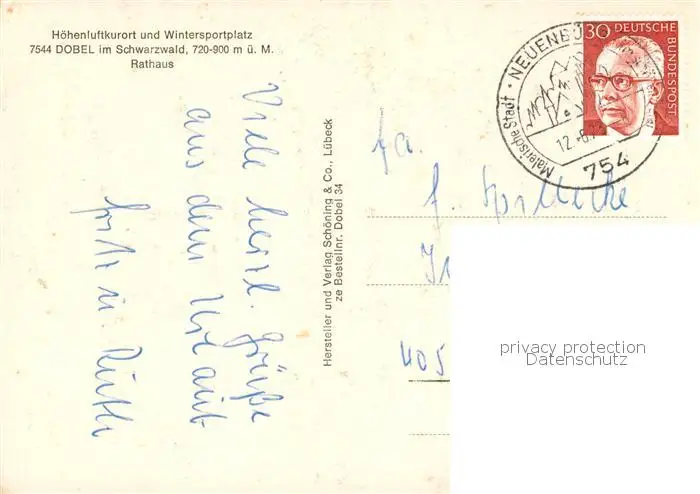 Höhenluftkurort und Wintersportplatz
7544 DOBEL im Schwarzwald, 720-900 m ü. M.
Rathaus
Viele herzl. Grüße
aus dem Urlaub
Fritz u. Ruth
Hersteller und Verlag Schöning & Co., Lübeck
ze Bestellnr. Dobel 34
Malerische Stadt • NEUENBÜ
12.-8.7
754
30 DEUTSCHE
BUNDESPOST
Fa.
405
privacy protection
Datenschutz